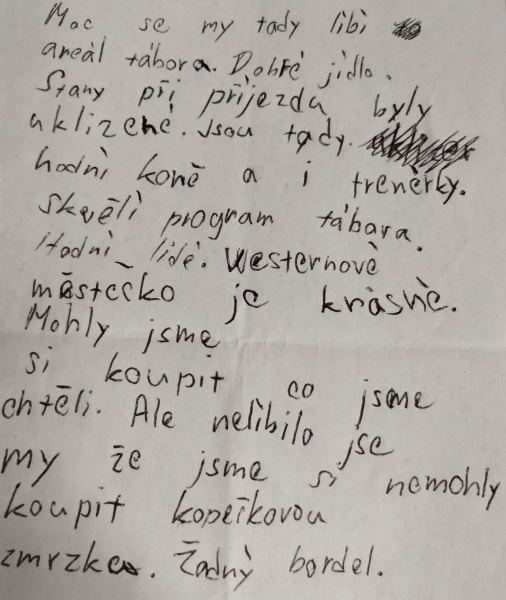 Moc se my tady libí
areál tábora. Dobré jídlo.
Stany při příjezdu byly
uklizené. Jsou tady.
hodní koně a i trenérky.
Skvělí program tábara.
Hodní lidé. Westernové
městečko je krásné.
Mohly jsme
si koupit co jsme
chtěli. Ale nelibilo jse
my že jsme si nemohly
koupit kopeřkovou
zmrzka. Žádný bordel.